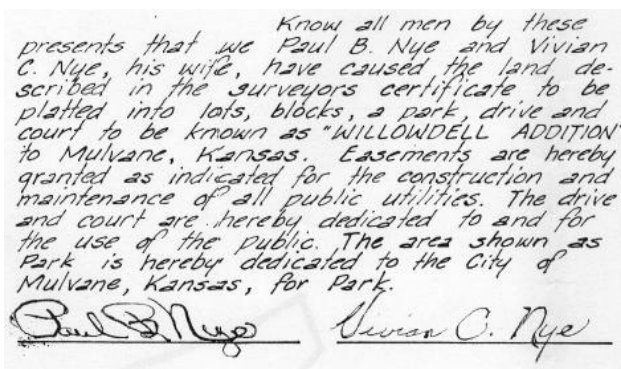 Know all men by these
presents that we Paul B. Nye and Vivian
C. Nye, his wife, have caused the land de-
scribed in the surveyors certificate to be
platted into lots, blocks, a park, drive and
court to be known as "WILLOWDELL ADDITION"
to Mulvane, Kansas. Easements are hereby
granted as indicated for the construction and
maintenance of all public utilities. The drive
and court are hereby dedicated to and for
the use of the public. The area shown as
Park is hereby dedicated to the City of
Mulvane, Kansas, for Park.
Paul B. Nye Vivian C. Nye